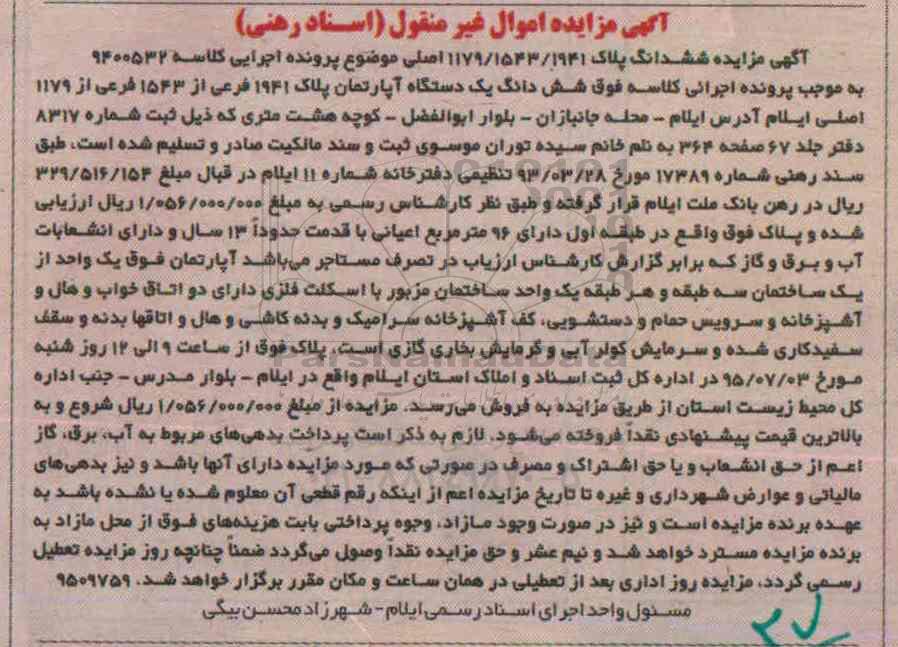 آگهی مزایده اموال غیر منقول (اسناد رهنی)
آگهی مزایده ششدانگ پلاک ۱۱۷۹/۱۵۴۳/۱۹۴۱ اصلی موضوع پرونده اجرایی کلاسه ۹۴۰۰۵۳۲
به موجب پرونده اجرائی کلاسه فوق شش دانگ یک دستگاه آپارتمان پلاک ۱۹۴۱ فرعی از ۱۵۴۳ فرعی از ۱۱۷۹
اصلی ایلام آدرس ایلام - محله جانبازان - بلوار ابوالفضل - کوچه هشت متری که ذیل ثبت شماره ۸۳۱۷
دفتر جلد ۶۷ صفحه ۳۶۴ به نام خانم سیده توران موسوی ثبت و سند مالکیت صادر و تسلیم شده است، طبق
سند رهنی شماره ۱۷۳۸۹ مورخ ۹۳/۰۳/۲۸ تنظیمی دفترخانه شماره ۱۱ ایلام در قبال مبلغ ۳۲۹/۵۱۶/۱۵۴
ریال در رهن بانک ملت ایلام قرار گرفته و طبق نظر کارشناس رسمی به مبلغ ۱/۰۵۶/۰۰۰/۰۰۰ ریال ارزیابی
شده و پلاک فوق واقع در طبقه اول دارای ۹۶ مترمربع اعیانی با قدمت حدوداً ۱۳ سال و دارای انشعابات
آب و برق و گاز که برابر گزارش کارشناس ارزیاب در تصرف مستاجر می‌باشد آپارتمان فوق یک واحد از
یک ساختمان سه طبقه و هر طبقه یک واحد ساختمان مزبور با اسکلت فلزی دارای دو اتاق خواب و هال و
آشپزخانه و سرویس حمام و دستشویی، کف آشپزخانه سرامیک و بدنه کاشی و هال و اتاقها بدنه و سقف
سفیدکاری شده و سرمایش کولر آبی و گرمایش بخاری گازی است، پلاک فوق از ساعت ۹ الی ۱۲ روز شنبه
مورخ ۹۵/۰۷/۰۳ در اداره کل ثبت اسناد و املاک استان ایلام واقع در ایلام - بلوار مدرس - جنب اداره
کل محیط زیست استان از طریق مزایده به فروش می‌رسد. مزایده از مبلغ ۱/۰۵۶/۰۰۰/۰۰۰ ریال شروع و به
بالاترین قیمت پیشنهادی نقداً فروخته می‌شود. لازم به ذکر است پرداخت بدهی‌های مربوط به آب، برق، گاز
اعم از حق انشعاب و یا حق اشتراک و مصرف در صورتی که مورد مزایده دارای آنها باشد و نیز بدهی‌های
مالیاتی و عوارض شهرداری و غیره تا تاریخ مزایده اعم از اینکه رقم قطعی آن معلوم شده یا نشده باشد به
عهده برنده مزایده است و نیز در صورت وجود مازاد، وجوه پرداختی بابت هزینه‌های فوق از محل مازاد به
برنده مزایده مسترد خواهد شد و نیم عشر و حق مزایده نقداً وصول می‌گردد ضمناً چنانچه روز مزایده تعطیل
رسمی گردد، مزایده روز اداری بعد از تعطیلی در همان ساعت و مکان مقرر برگزار خواهد شد. ۹۵۰۹۷۵۹
مسئول واحد اجرای اسناد رسمی ایلام - شهرزاد محسن بیگی